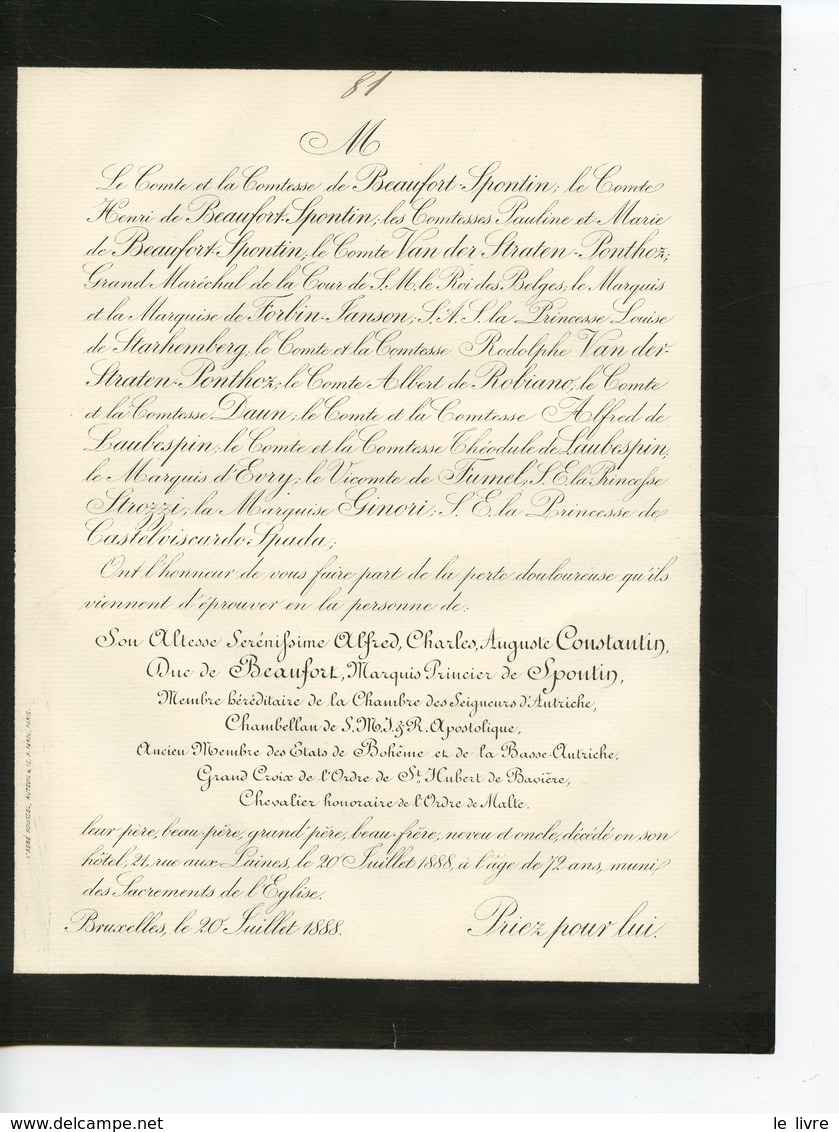 81
M
Le Comte et la Comtesse de Beaufort-Spontin; le Comte
Henri de Beaufort-Spontin; les Comtesses Pauline et Marie
de Beaufort-Spontin; le Comte Van der Straten-Ponthoz;
Grand Maréchal de la Cour de S.M. le Roi des Belges; le Marquis
et la Marquise de Forbin-Janson; S.A.S. la Princesse Louise
de Starhemberg; le Comte et la Comtesse Rodolphe Van der-
Straten-Ponthoz; le Comte Albert de Robiano; le Comte
et la Comtesse Daun; le Comte et la Comtesse Alfred de
Laubespin; le Comte et la Comtesse Théodule de Laubespin;
le Marquis d'Evry; le Vicomte de Fumel; S.E. la Princesse
Strozzi; la Marquise Ginori; S.E. la Princesse de
Castelviscardo-Spada;
Ont l'honneur de vous faire part de la perte douloureuse qu'ils
viennent d'éprouver en la personne de:
Son Altesse Serénissime Alfred, Charles, Auguste Constantin,
Duc de Beaufort, Marquis Princier de Spontin,
Membre héréditaire de la Chambre des Seigneurs d'Autriche,
Chambellan de S.M.I. & R. Apostolique,
Ancien Membre des Etats de Bohême et de la Basse-Autriche,
Grand Croix de l'Ordre de St. Hubert de Bavière,
Chevalier honoraire de l'Ordre de Malte.
leur père, beau-père, grand'père, beau-frère, neveu et oncle, décédé en son
hôtel, 21, rue aux Laines, le 20 Juillet 1888, à l'âge de 72 ans, muni
des Sacrements de l'Eglise.
Bruxelles, le 20 Juillet 1888. Priez pour lui.
L'ABBÉ ROUSSEL, AUTEUIL &
le livre